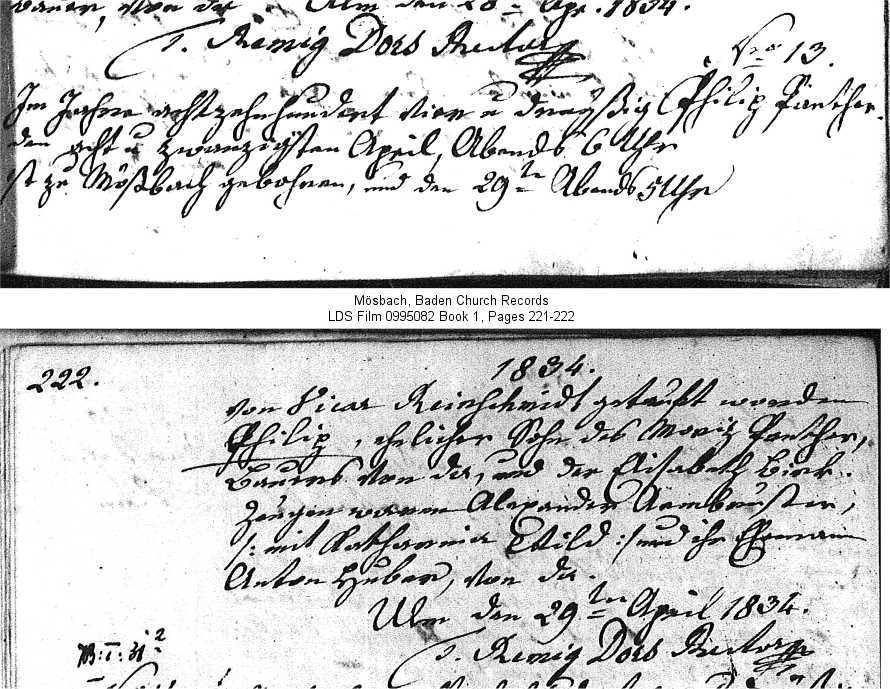 von der Ulm den 28ten Apr. 1834.
T. Remig Dors Rector
Nro 13.
Im Jahre achtzehnhundert vier u dreyßig Philip Panther.
den acht u zwanzigsten April, Abends 6 Uhr
ist zu Mößbach gebohren, und den 29ten Abends 5 Uhr
Mösbach, Baden Church Records
LDS Film 0995082 Book 1, Pages 221-222
222.
1834.
von Vicar Reinschmidt getauft worden
Philip, ehelicher Sohn des Moriz Panther,
Bauers von da, und der Elisabeth Birk.
Zeugen waren Alexander Armbruster,
/: mit Katharina :/ und ihr Ehemann
Anton Huber, von da.
Ulm den 29ten April 1834.
T. Remig Dors Rector